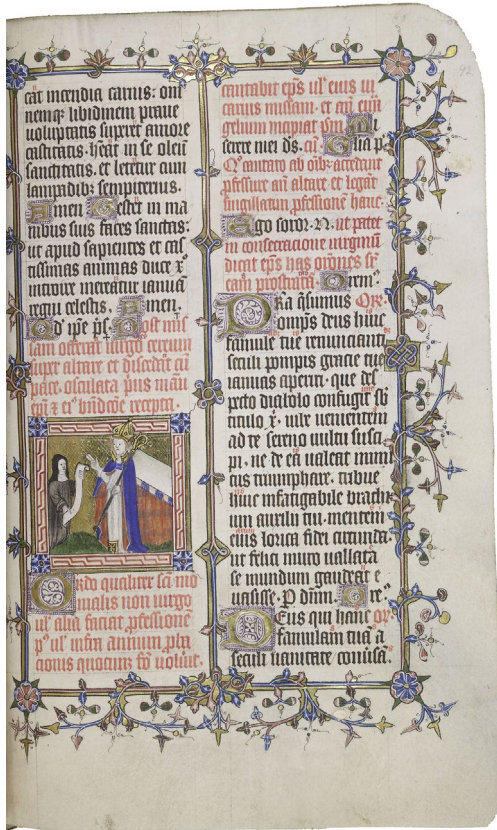 cat incendia carnis: om
nemq; libidinem praue
uoluptatis supet amore
castitatis. heat in se oleū
sanctitatis. et letetur cum
lampadib; sempiternis.
Amen. Gestet in ma
nibus suis faces sanctas:
ut apud sapientes et cas
tissimas animas duce x
introire mereatur ianuā
regni celestis. Amen.
Qd ipe ps. Post mis
sam offerat uirgo cereum
super altare et discedit cū
pace. osculata prius manū
epi & ei bndcōe recepta.
Ordo qualiter scimo
nialis non uirgo
ul alia faciat professionē
p ul infra annum. pla
cionis quociens fō uoluit.
cantabit eps ul eius ui
carius missam. et aū euā
gelium incipiat pm. M
serere mei ds. cū Glīa p.
Q cantato ab oīb; accedant
pfessure aū altare et legat
singillatim pfessionē hanc.
Ego soror. N. ut patet
in consecracione uirginū
dicat eps has orōnes sr
eam prostratā. Orem
Da qsumus Or.
omips deus huic
famule tue renuncianti
seculi pompis gracie tue
ianuas aperiri. que des
pecto diabolo confugit sb
titulo x. iube uenientem
ad te sereno uultu susci
pi. ne de ea ualeat inimi
cus triumphare. tribue
huic infatigabile brachi
um auxilii tui. mentem
eius lorica fidei circunda.
ut felici muro uallata
se mundum gaudeat e
uasisse. P dnm. Ore.
Deus qui hanc or.
famulam tuā a
seculi uanitate conusā.
92